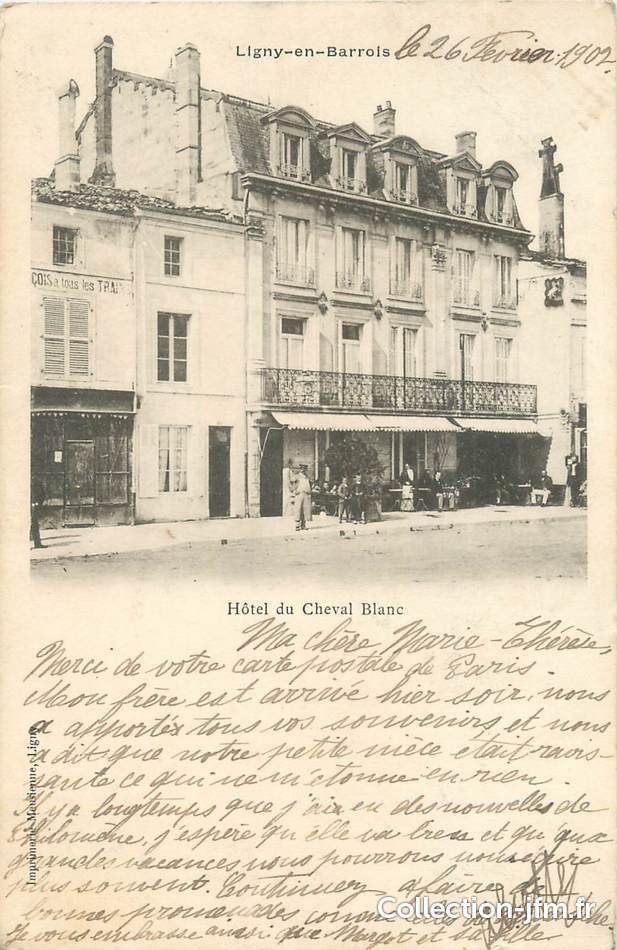 Ligny-en-Barrois le 26 Février 1902
ÇOIS à tous les TRAI
Hôtel du Cheval Blanc
Ma chère Marie-Thérèse,
Merci de votre carte postale de Paris.
Mon frère est arrivé hier soir, nous
a apportés tous vos souvenirs et nous
a dit que notre petite nièce était ravis-
sante ce qui ne m'étonne en rien.
Il y a longtemps que j'ai eu des nouvelles de
Philomène, j'espère qu'elle va bien et qu'aux
grandes vacances nous pourrons nous
plus souvent. Continuez à faire de
bonnes promenades
Je vous embrasse ainsi que Margot et
Imprimerie Meusienne, Ligny
Collection-jfm.fr